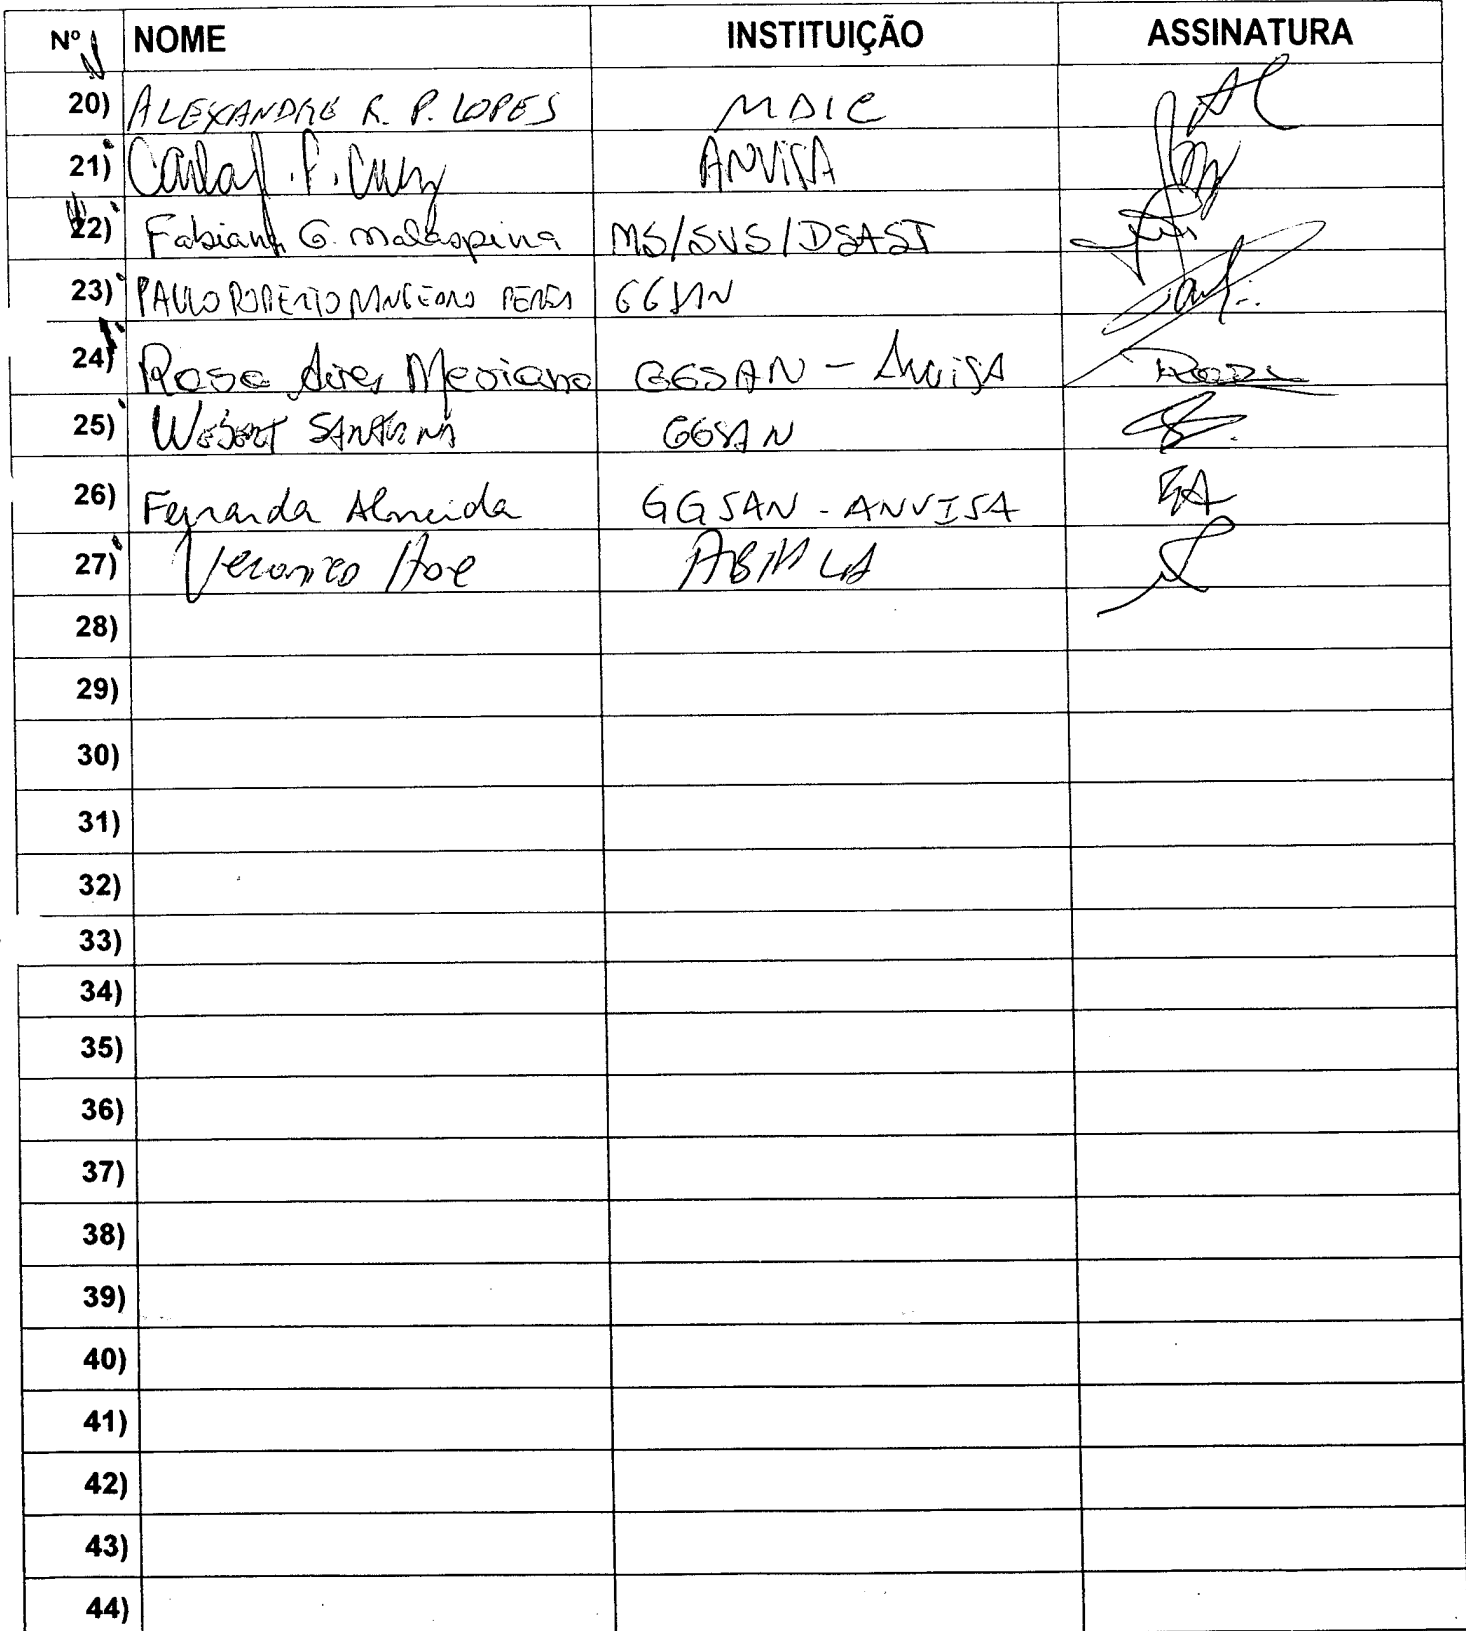 Nº NOME INSTITUIÇÃO ASSINATURA
20) ALEXANDRE R. P. LOPES MDIC
21) Carla F. Cruz ANVISA
22) Fabiana G. Malaspina MS/SVS/DSAST
23) PAULO ROBERTO GGSAN
24) Rosa Aires Mesiano GGSAN - Anvisa
25) Webert Santana GGSAN
26) Fernanda Almeida GGSAN - ANVISA
27) ABIPLA
28)
29)
30)
31)
32)
33)
34)
35)
36)
37)
38)
39)
40)
41)
42)
43)
44)